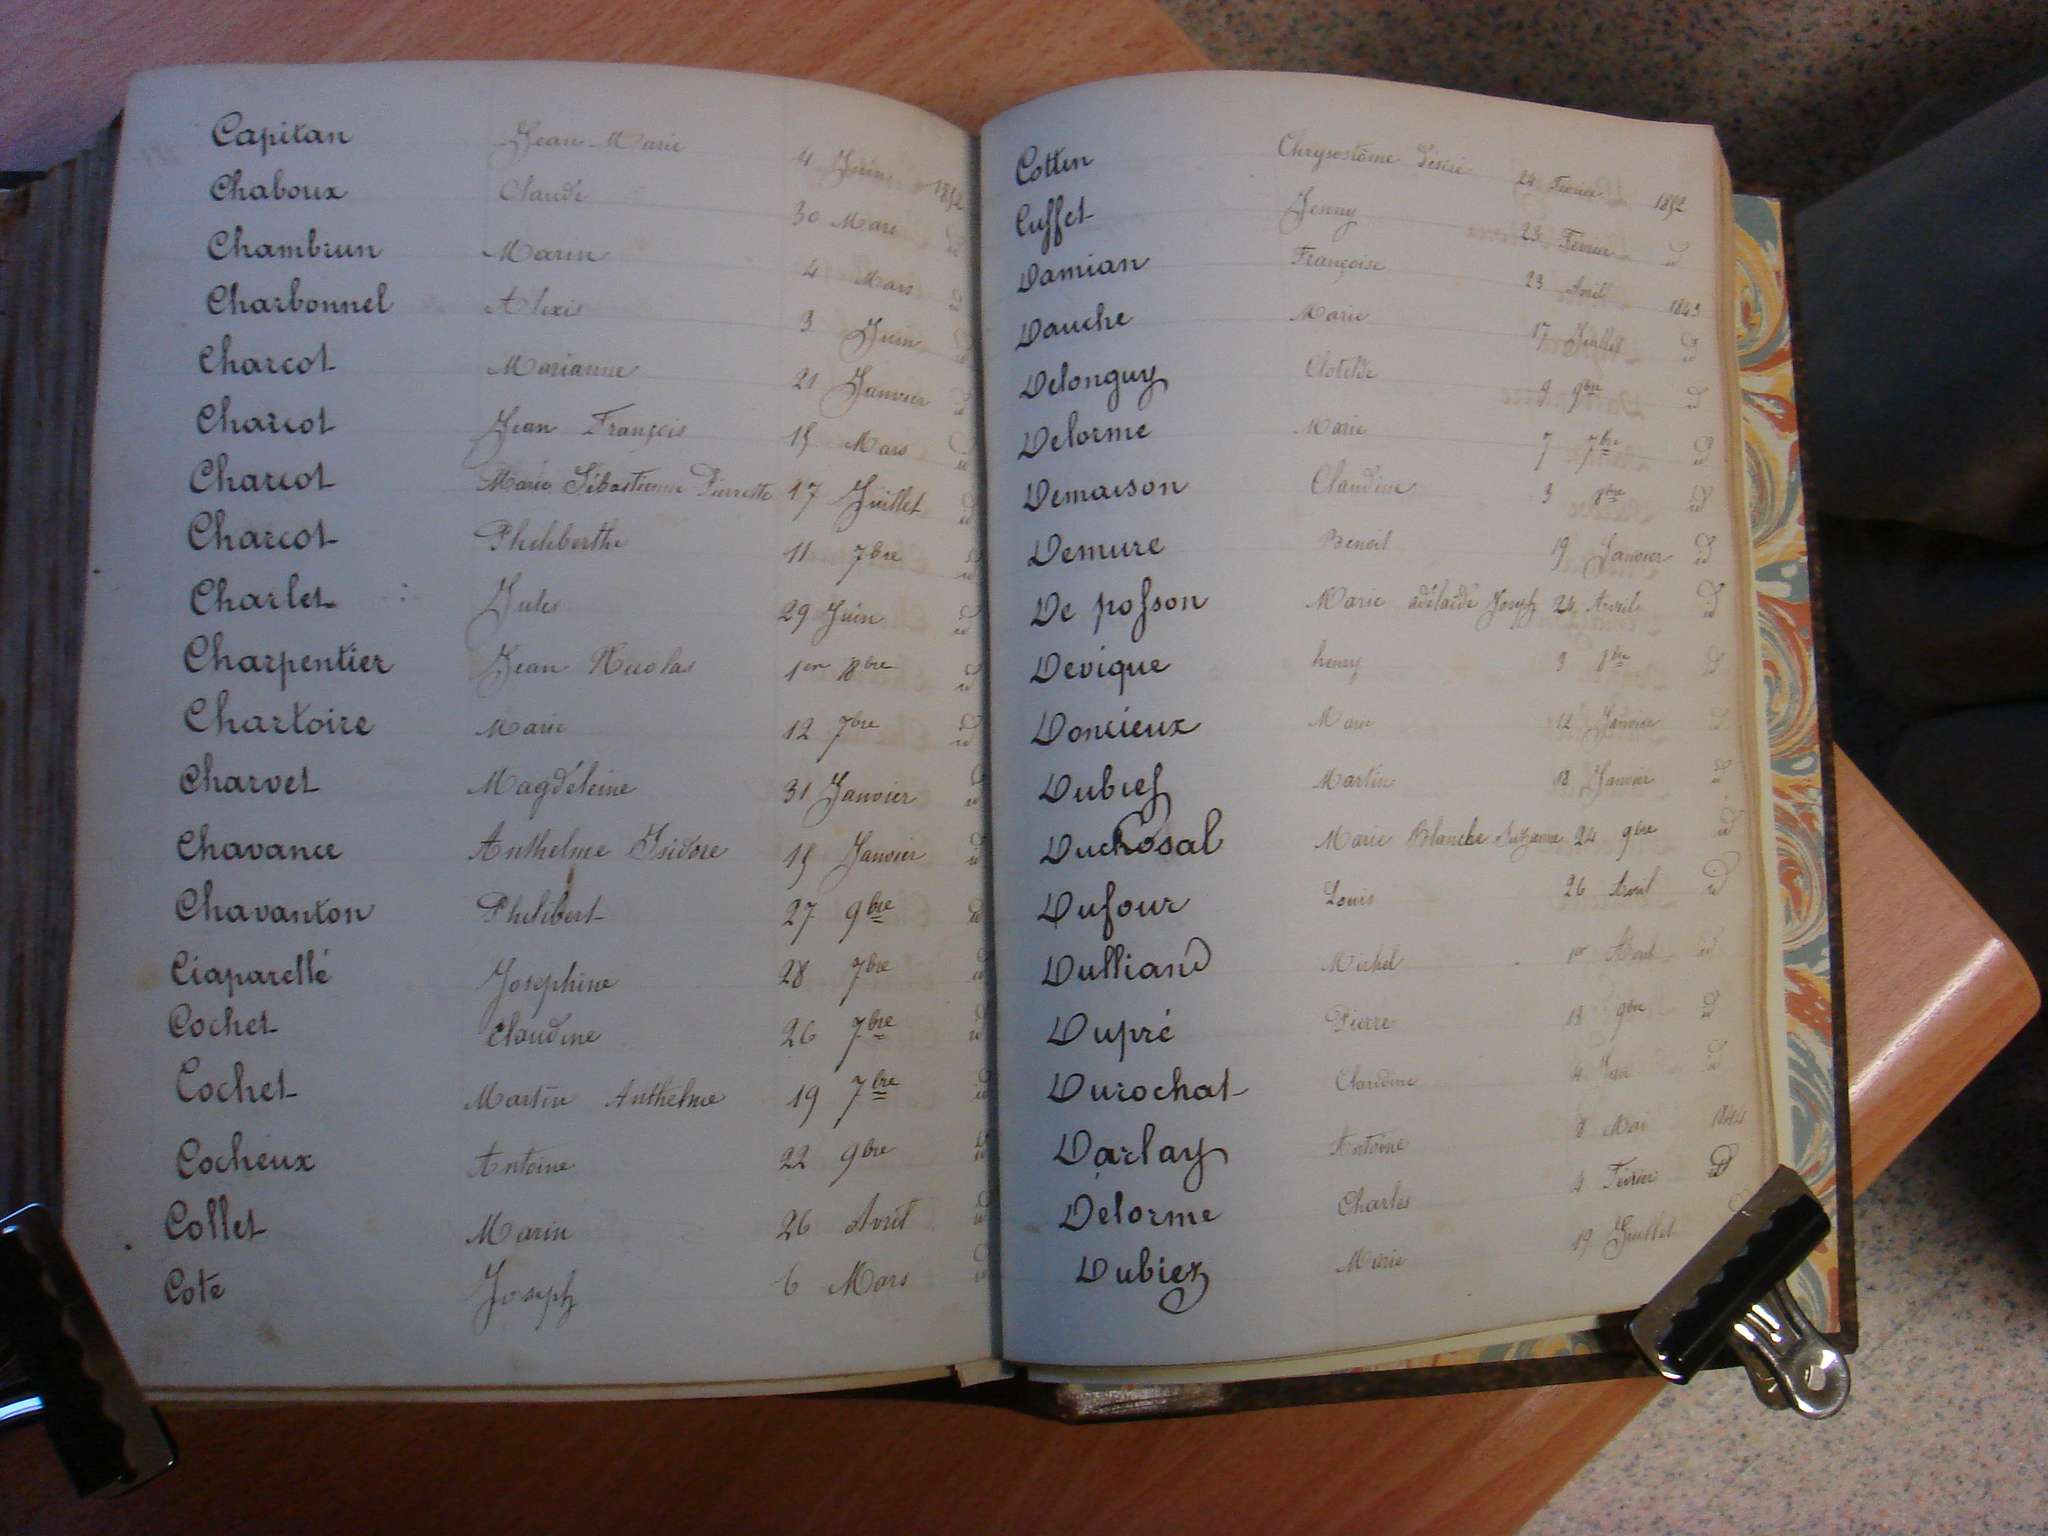 Capitan Jean Marie 4 Juin 1852
Chaboux Claude 30 Mars id
Chambrun Marin 4 Mars id
Charbonnel Alexis 3 Juin id
Charcot Marianne 21 Janvier id
Charcot Jean François 15 Mars id
Charcot Marie Sébastienne Pierrette 17 Juillet id
Charcot Philiberthe 11 7bre id
Charlet Jules 29 Juin id
Charpentier Jean Nicolas 1er 8bre id
Chartoire Marie 12 7bre id
Charvet Magdéleine 31 Janvier id
Chavance Anthelme Isidore 15 Janvier id
Chavanton Philibert 27 9bre id
Ciaparellé Joséphine 28 7bre id
Cochet Claudine 26 7bre id
Cochet Martin Anthelme 19 7bre id
Cocheux Antoine 22 9bre id
Collet Marin 26 Avril id
Cote Joseph 6 Mars id
Cotten Chrysostôme Désiré 24 Février 1852
Cuffet Jenny 23 Février id
Damian Françoise 23 Avril 1843
Dauche Marie 17 Juillet id
Delonguy Clotilde 9 9bre id
Delorme Marie 7 7bre id
Demaison Claudine 3 8bre id
Demure Benoit 19 Janvier id
De posson Marie adélaïde Joseph 24 Avril id
Devique henry 3 8bre id
Doncieux Marie 12 Janvier id
Dubief Martin 18 Janvier id
Duchosal Marie Blanche Suzanne 24 9bre id
Dufour Louis 26 Avril id
Dulliand Michel 1er Aout id
Dupré Pierre 18 9bre id
Durochat Claudine 4 id
Darlay Antoine 8 Mai 1844
Delorme Charles 4 Février id
Dubiez Marie 19 Juillet